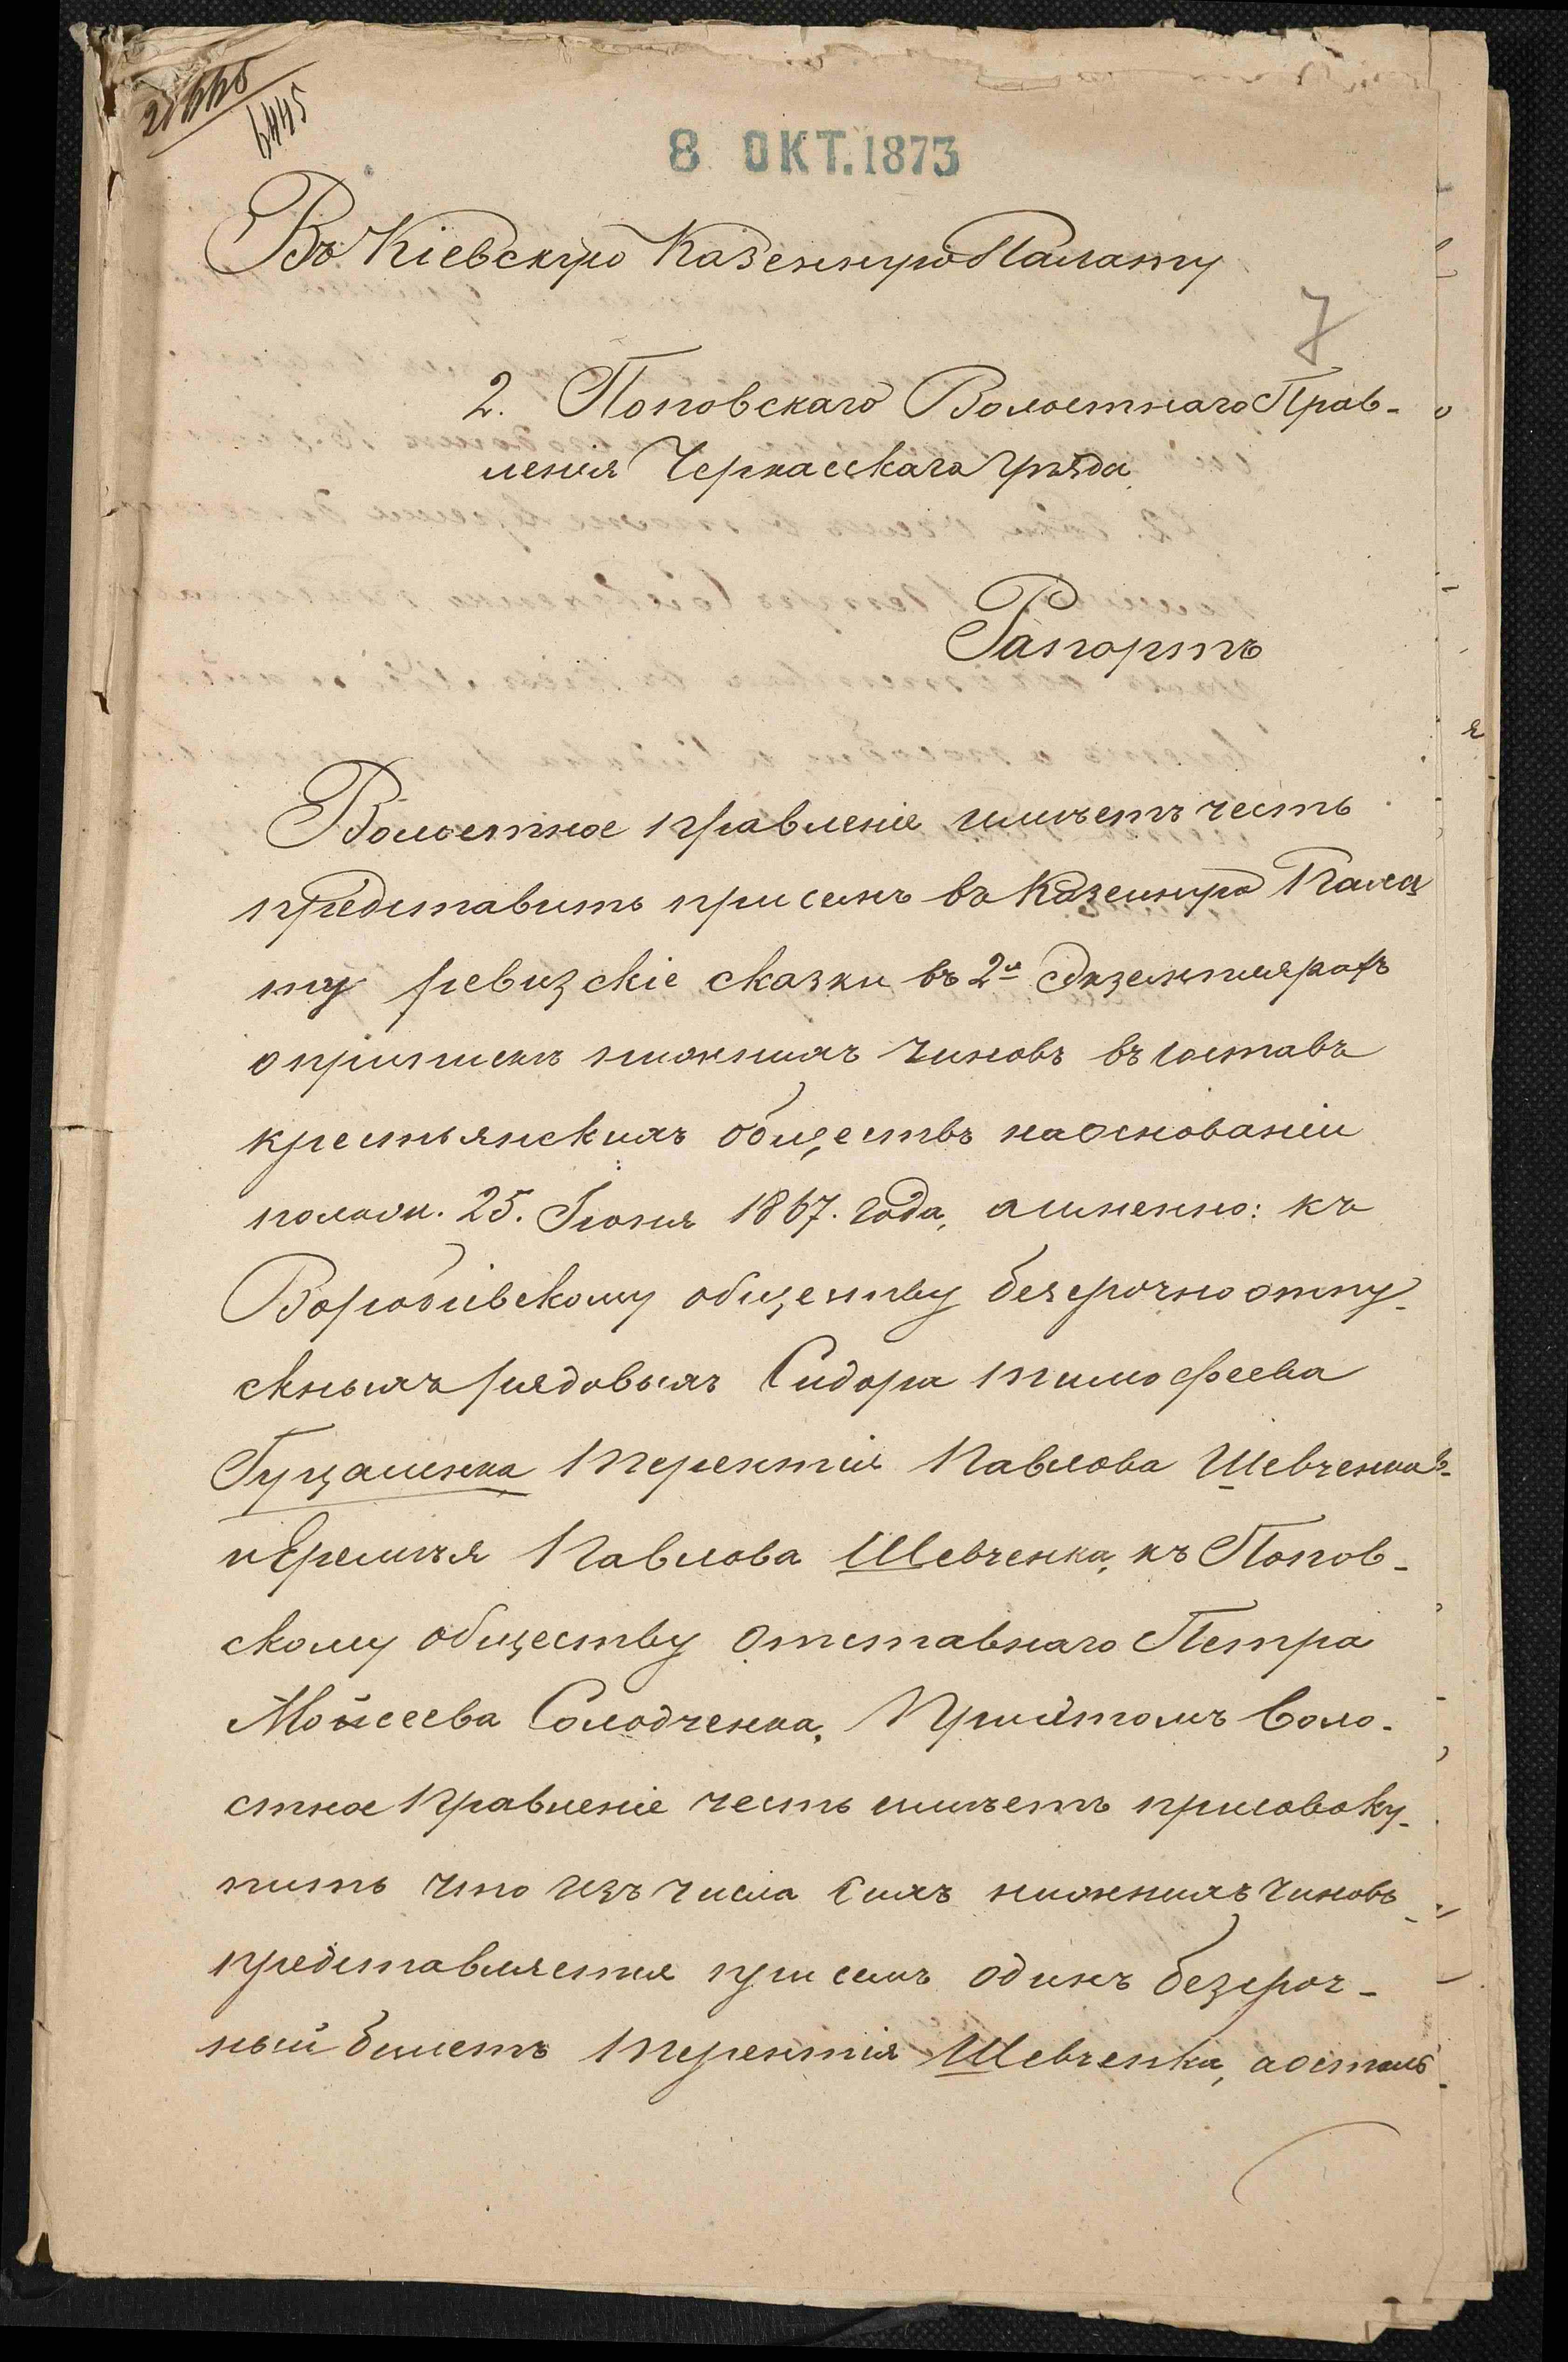 6445
8 ОКТ. 1873
Въ Кіевскую Казенную Палату
7
2. Поповскаго Волостнаго Прав-
ленія Черкасскаго уѣзда
Рапортъ
Волостное правленіе имѣетъ честь
представить при семъ въ Казенную Пала
ту ревизскіе сказки въ 2хъ экземплярахъ
о припискѣ нижнихъ чиновъ въ составъ
крестьянскихъ обществъ на основаніи
полож. 25. Іюня 1867. года, а именно: къ
Воробіевскому обществу безсрочно отпу-
скныхъ рядовыхъ Сидора Тимофеева
Гуцаленка Терентія Павлова Шевченка
и Еремѣя Павлова Шевченка, къ Попов-
скому обществу отставнаго Петра
Мойсеева Солодченка, При этомъ Воло-
стное Правленіе честь имѣетъ присовоку-
пить что изъ числа сихъ нижнихъ чиновъ
представляется при семъ одинъ безсроч-
ный билетъ Терентія Шевченка, а осталь-